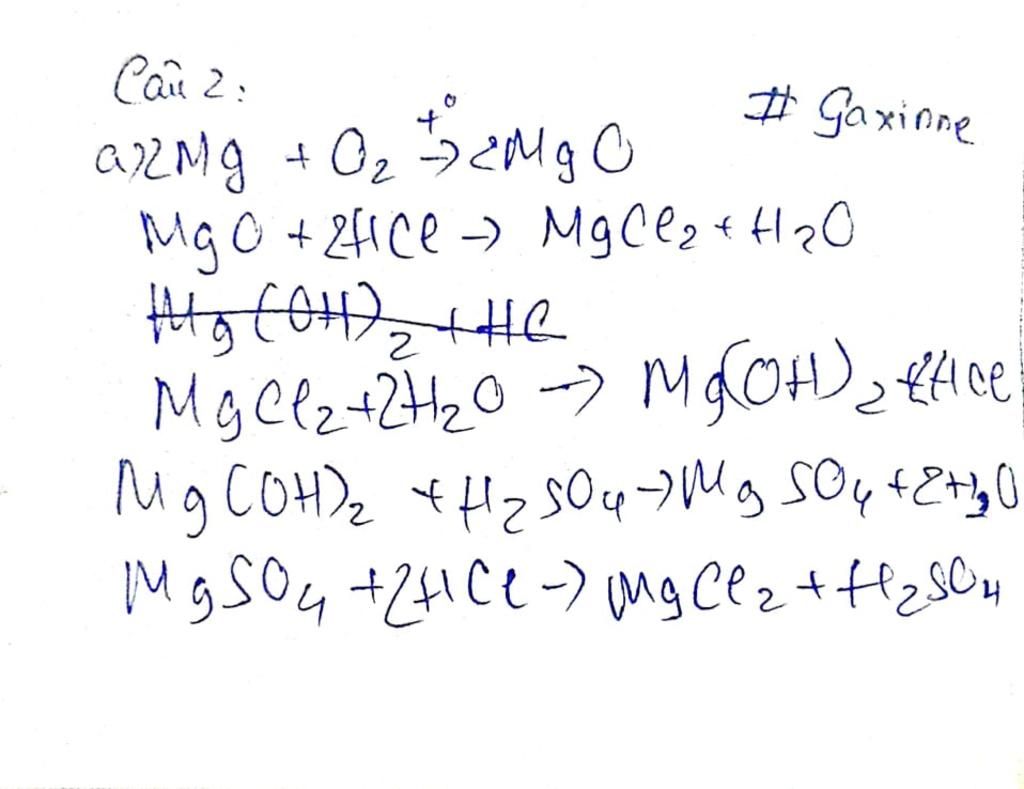 Câu 2:
# Gaxinne
a) 2Mg + O₂ →t° 2MgO
MgO + 2HCl → MgCl₂ + H₂O
Mg(OH)₂ + HC
MgCl₂ + 2H₂O → Mg(OH)₂ + 2HCl
Mg(OH)₂ + H₂SO₄ → MgSO₄ + 2H₂O
MgSO₄ + 2HCl → MgCl₂ + H₂SO₄